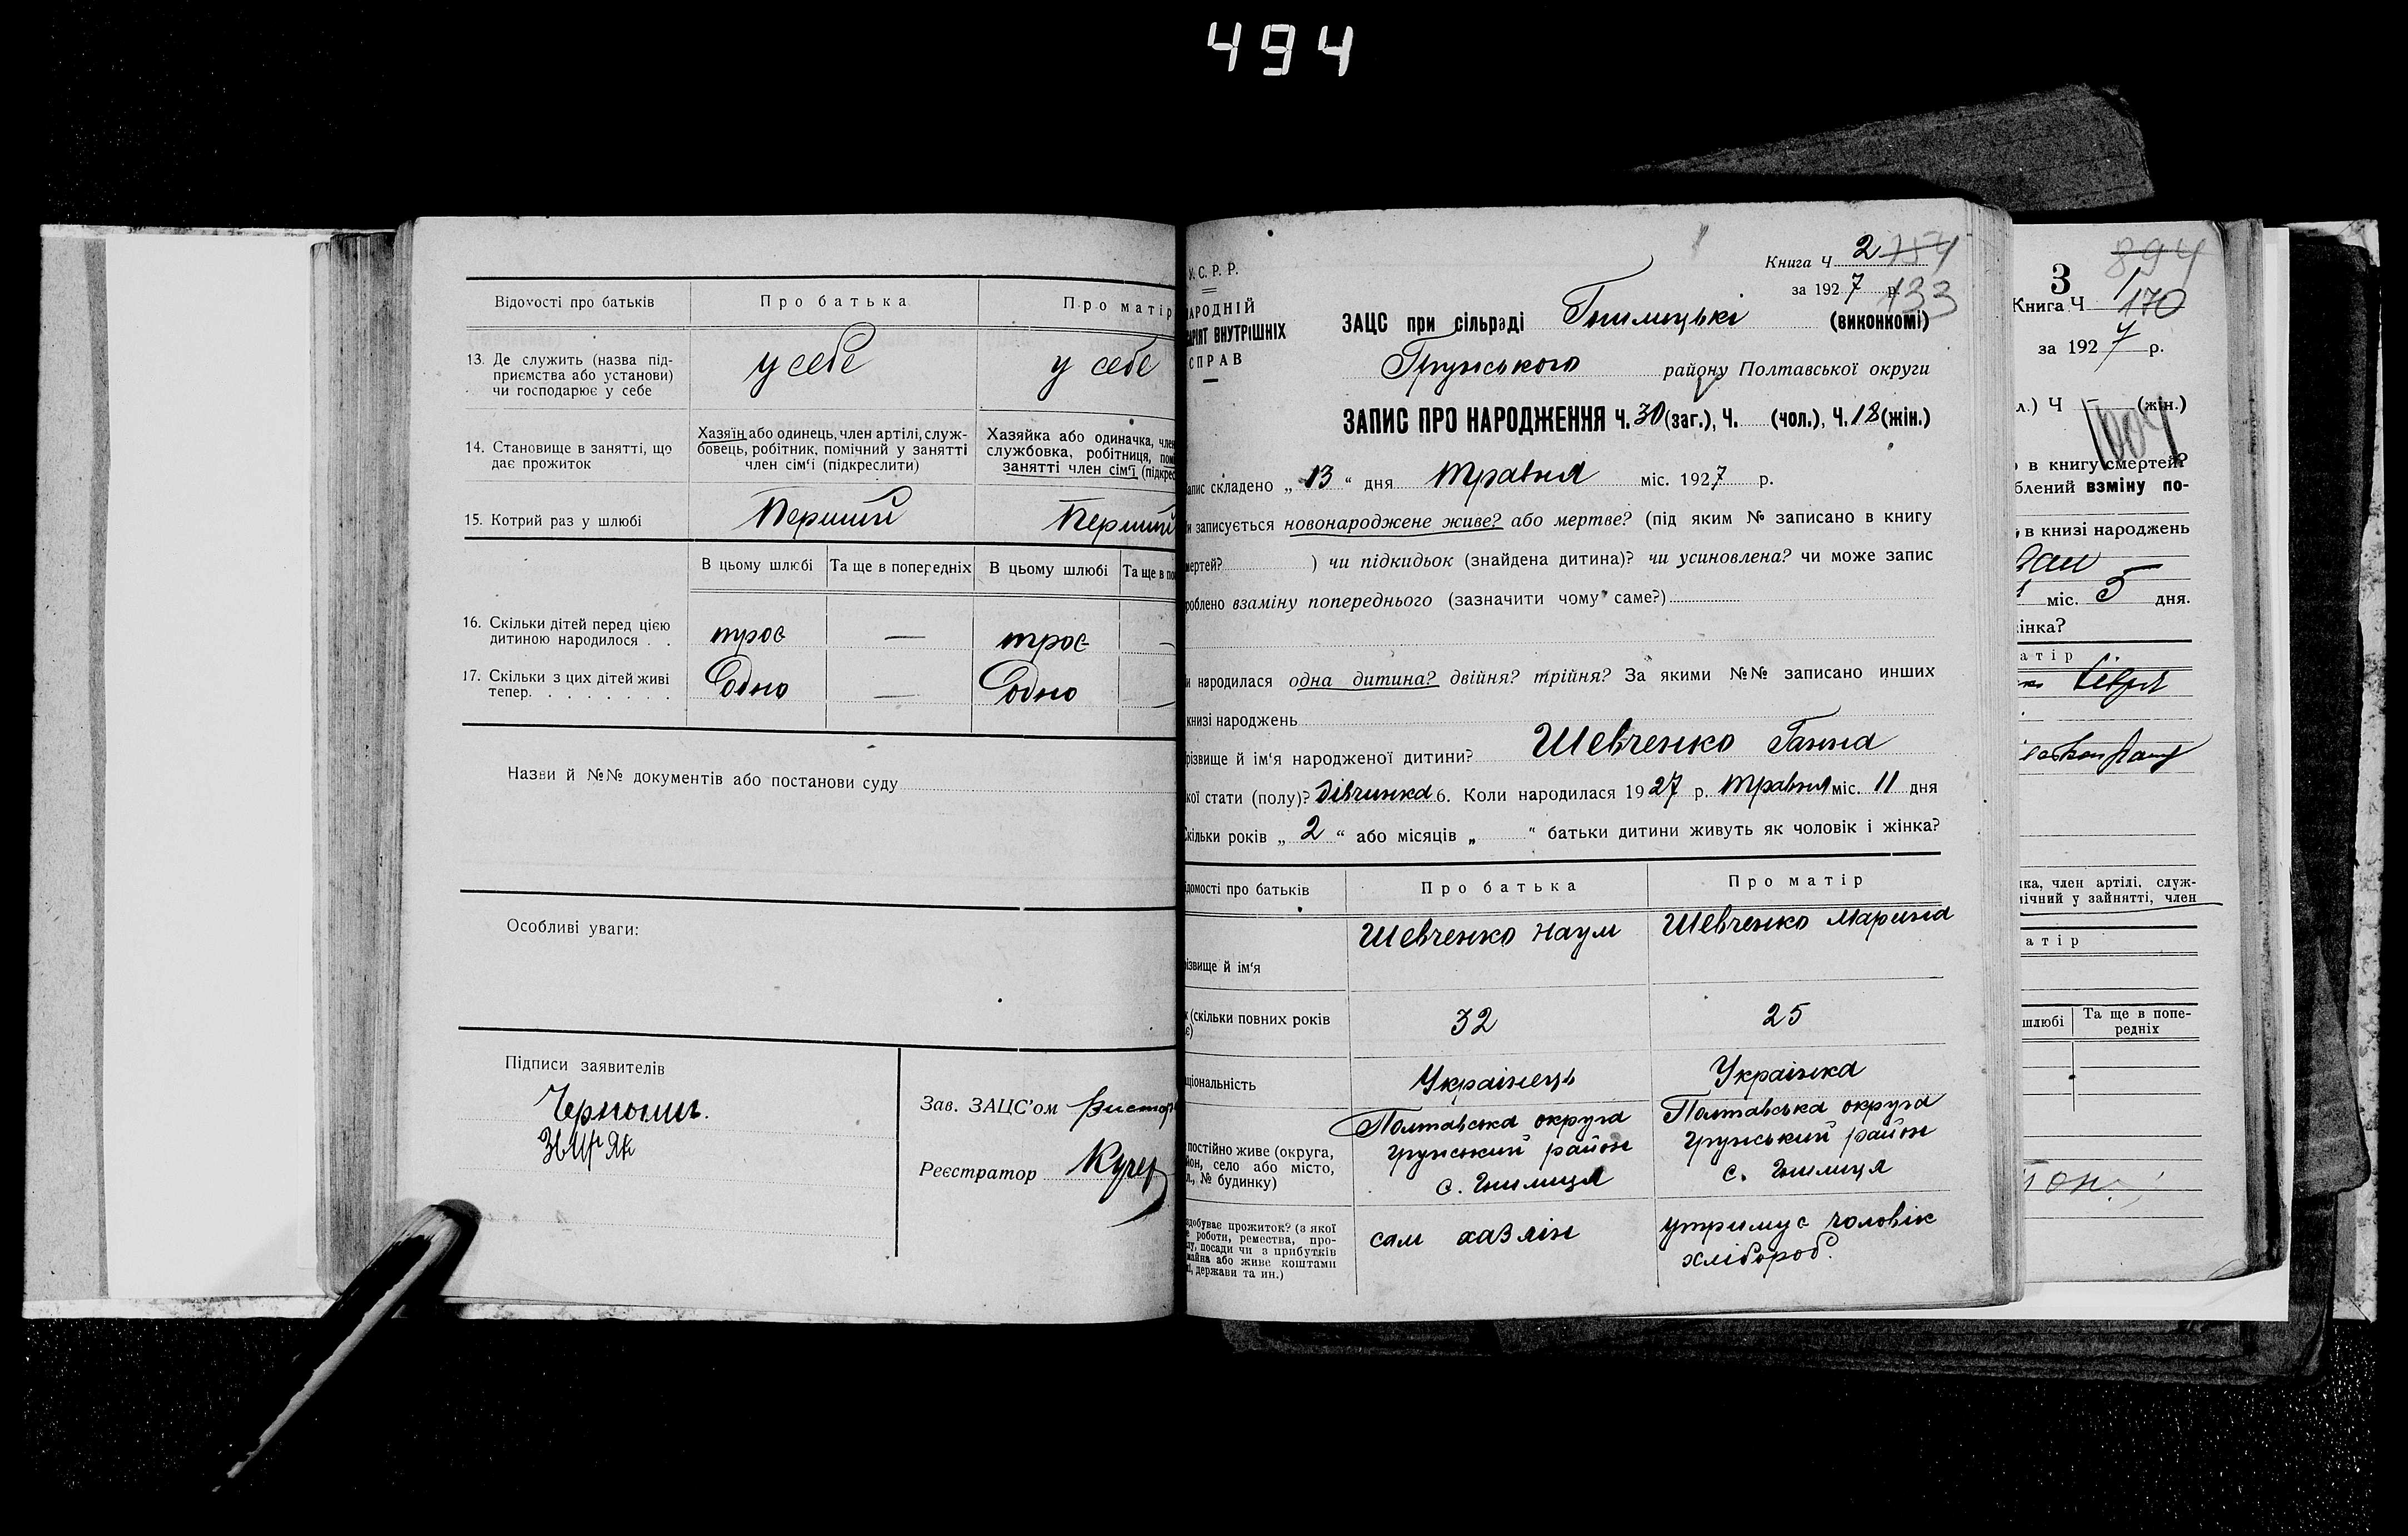 494
Відомості про батьків
Про батька
Про матір
13. Де служить (назва під-
приємства або установи)
чи господарює у себе
у себе
у себе
14. Становище в занятті, що
дає прожиток
Хазяїн або одинець, член артілі, служ-
бовець, робітник, помічний у занятті
член сім'ї (підкреслити)
Хазяйка або одиначка, член
службовка, робітниця, пом
занятті член сім'ї (підкрес
15. Котрий раз у шлюбі
Перший
Перший
В цьому шлюбі
Та ще в попередніх
В цьому шлюбі
Та ще в по
16. Скільки дітей перед цією
дитиною народилося . .
троє
—
троє
17. Скільки з цих дітей живі
тепер. . . . . . . .
Одно
—
Одно
Назви й №№ документів або постанови суду
Особливі уваги:
Підписи заявителів
Зав. ЗАЦС'ом
Реєстратор Кучер
У.С.Р.Р.
НАРОДНІЙ
ВНУТРІШНІХ
СПРАВ
Книга Ч 2 154
за 1927 р. 133
ЗАЦС при сільраді Гнилицькі (виконкомі)
Грунського району Полтавської округи
ЗАПИС ПРО НАРОДЖЕННЯ Ч. 30 (заг.), Ч. (чол.), Ч. 18 (жін.)
запис складено „ 13 “ дня травня міс. 1927 р.
и записується новонароджене живе? або мертве? (під яким № записано в книгу
мертей? ) чи підкидьок (знайдена дитина)? чи усиновлена? чи може запис
роблено взаміну попереднього (зазначити чому саме?)
и народилася одна дитина? двійня? трійня? За якими №№ записано инших
книзі народжень
різвище й ім'я народженої дитини? Шевченко Ганна
кої стати (полу)? дівчинка 6. Коли народилася 1927 р. травня міс. 11 дня
Скільки років „ 2 “ або місяців „ “ батьки дитини живуть як чоловік і жінка?
ідомості про батьків
Про батька
Про матір
різвище й ім'я
Шевченко Наум
Шевченко Марина
к (скільки повних років
є)
32
25
аціональність
Українець
Українка
постійно живе (округа,
йон, село або місто,
л., № будинку)
Полтавська округа
грунський район
с. Гнилиця
Полтавська округа
грунський район
с. Гнилиця
здобуває прожиток? (з якої
е роботи, ремества, про-
лу, посади чи з прибутків
майна або живе коштами
і, держави та ин.)
сам хазяїн
утримує чоловік
хлібороб.
894
3
Книга Ч 1
170
за 1927 р.
л.) Ч — (жін.)
1004
в книгу смертей?
блений взміну по-
в книзі народжень
міс. 5 дня.
інка?
атір
ика, член артілі, служ-
мічний у зайнятті, член
атір
шлюбі
Та ще в попе-
редніх